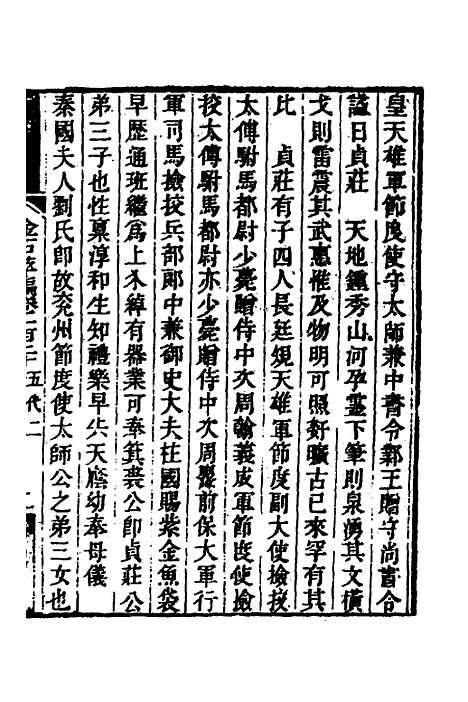 皇天雄軍節度使守太師兼中書令鄴王贈守尚書令
諡曰貞莊　天地鍾秀山河孕靈下筆則泉湧其文橫
戈則雷震其武惠惟及物明可照姧曠古已來罕有其
比　貞莊有子四人長廷規天雄軍節度副大使撿挍
太傅駙馬都尉少薨贈侍中次周翰義成軍節度使撿
挍太傅駙馬都尉亦少薨贈侍中次周䕫前保大軍行
軍司馬撿挍兵部郎中兼御史大夫柱國賜紫金魚袋
早歷通班繼爲上介綽有器業可奉箕裘公卽貞莊公
弟三子也性稟淳和生知禮樂早失天廕幼奉母儀
秦國夫人劉氏卽故兗州節度使太師公之弟三女也
金石萃編卷一百二十　五代二